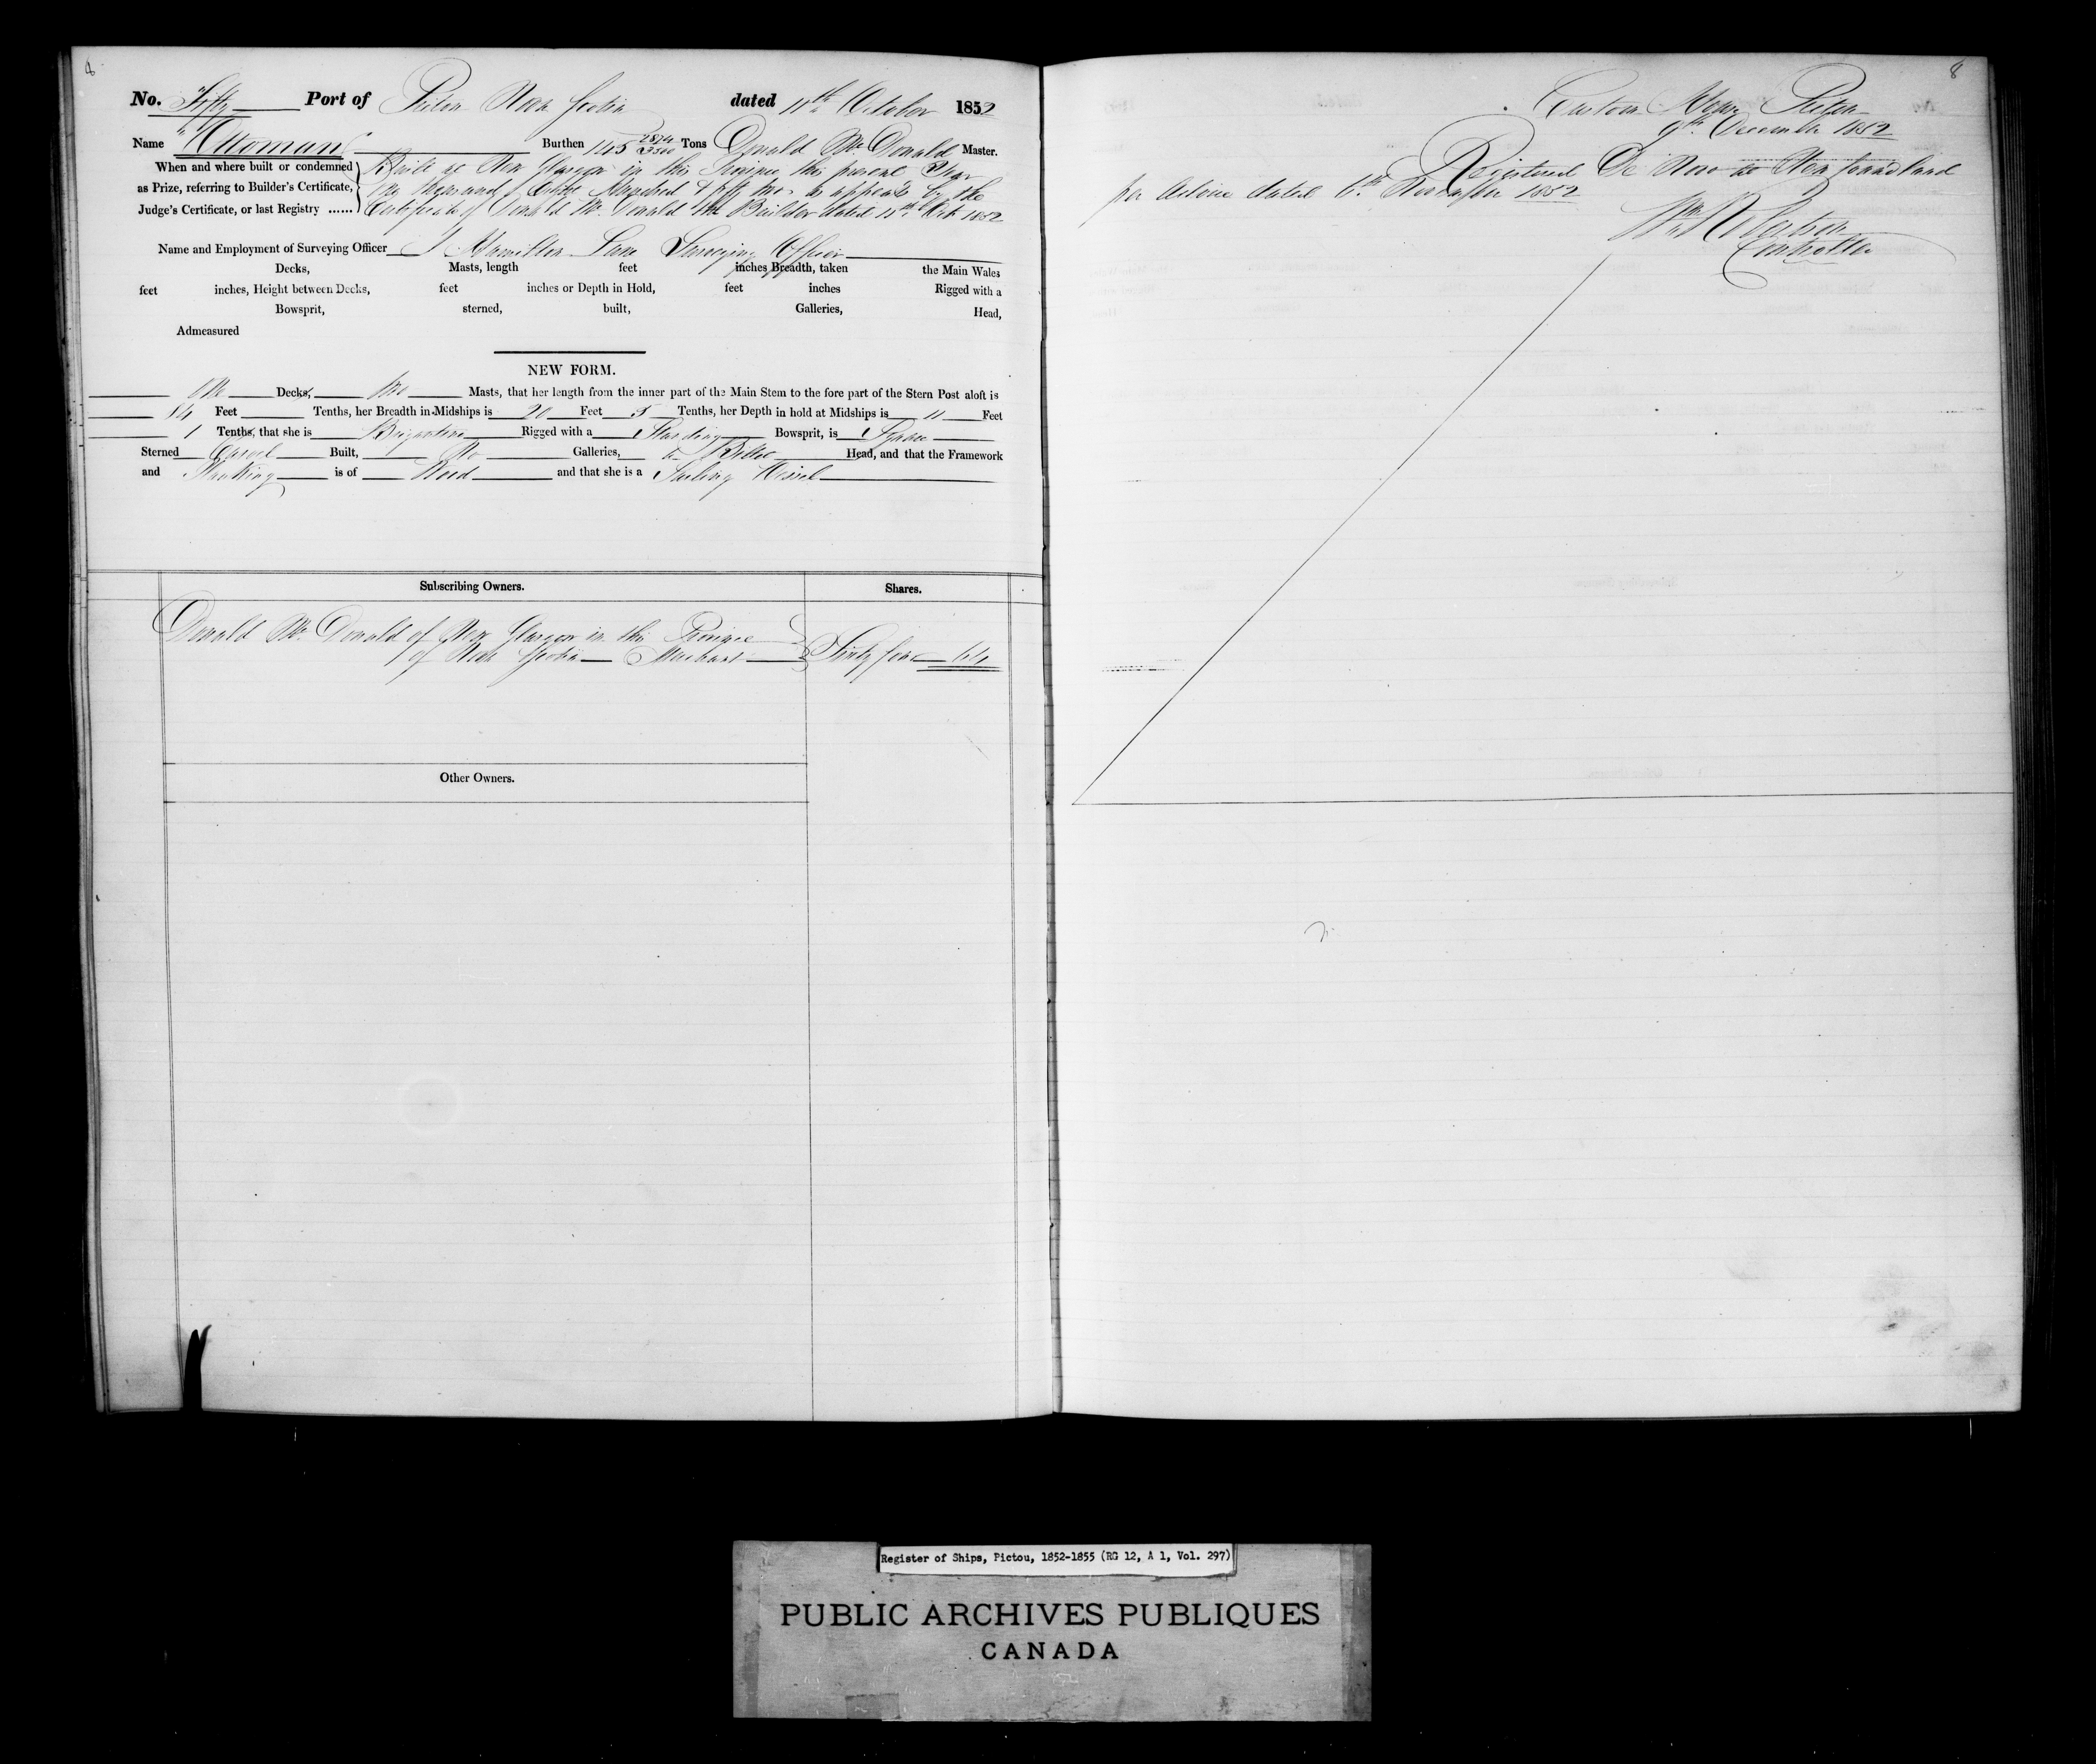 8
No. Fifty Port of Pictou Nova Scotia dated 11th October 1852
Name "Ottoman" Burthen 145 2874/3500 Tons Donald McDonald Master.
When and where built or condemned as Prize, referring to Builder's Certificate, Judge's Certificate, or last Registry ......
Built at New Glasgow in this Province this present Year
One thousand Eight Hundred & fifty two as appears by the
Certificate of Donald McDonald the Builder dated 11th Octr 1852
Name and Employment of Surveying Officer J Hamilton Lane Surveying Officer
Decks, Masts, length feet inches Breadth, taken the Main Wales
feet inches, Height between Decks, feet inches or Depth in Hold, feet inches Rigged with a
Bowsprit, sterned, built, Galleries, Head,
Admeasured
NEW FORM.
One Decks, Two Masts, that her length from the inner part of the Main Stem to the fore part of the Stern Post aloft is
84 Feet Tenths, her Breadth in Midships is 20 Feet 5 Tenths, her Depth in hold at Midships is 11 Feet
1 Tenths, that she is Brigantine Rigged with a Standing Bowsprit, is Square
Sterned Carvel Built, No Galleries, a Billet Head, and that the Framework
and Planking is of Wood and that she is a Sailing Vessel
Subscribing Owners. Shares.
Donald McDonald of New Glasgow in this Province
of Nova Scotia Merchant Sixty four 64
Other Owners.
8
Custom House Pictou
9th December 1852
Registered De Novo at Newfoundland
per Advice dated 16th November 1852
Wm Robertson
Controller
Register of Ships, Pictou, 1852-1855 (RG 12, A 1, Vol. 297)
PUBLIC ARCHIVES PUBLIQUES
CANADA